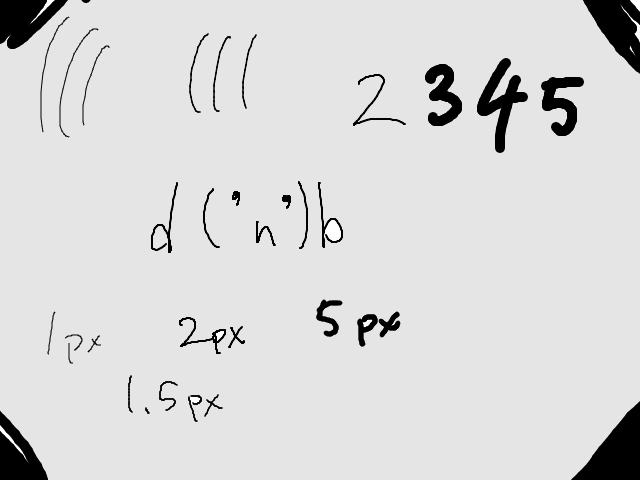 ((( ((( 2 3 4 5
d ('n') b
1px 2px 5px
1.5px